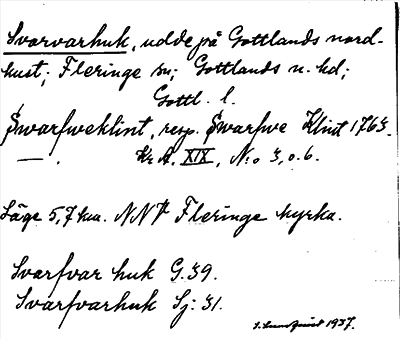 Svarvarhuk, udde på Gottlands nord-
kust; Fleringe sn; Gottlands n. hd;
Gottl. l.
Swarfweklint, resp. Swarfwe Klint 1763.
— . Kr A. XIX, N:o 3, o. 6.
Läge 5,7 km. NNV Fleringe kyrka.
Svarfvar huk G. 39.
Svarfvarhuk Sj: 31.
1937.